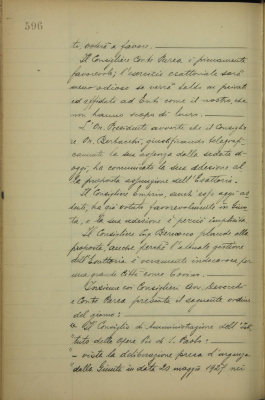 596
to, voterà a favore.
Il Consigliere Conte Parea è pienamente
favorevole; l'esercizio esattoriale sarà
meno odioso se verrà tolto ai privati
ed affidato ad Enti come il nostro, che
non hanno scopo di lucro.
L'On. Presidente avverte che il Consiglie-
re On. giustificando telegrafi-
camente la sua assenza dalla seduta di
oggi, ha comunicato la sua adesione al-
la proposta assunzione dell'Esattoria.
Il Consigliere anch'egli oggi as-
sente, ha già votato favorevolmente in Giun-
ta, e la sua adesione è perciò implicita.
Il Consigliere Ing. plaude alla
proposta, anche perchè l'attuale gestione
dell'Esattoria è veramente per
una grande Città come Torino.
coi Consiglieri Avv.
e Conte Parea presenta il seguente ordine
del giorno:
"Il Consiglio di Amministrazione dell'Isti-
"tuto delle Opere Pie di S. Paolo:
"- vista la deliberazione presa d'urgenza
"dalla Giunta in data 20 maggio 1927 nei